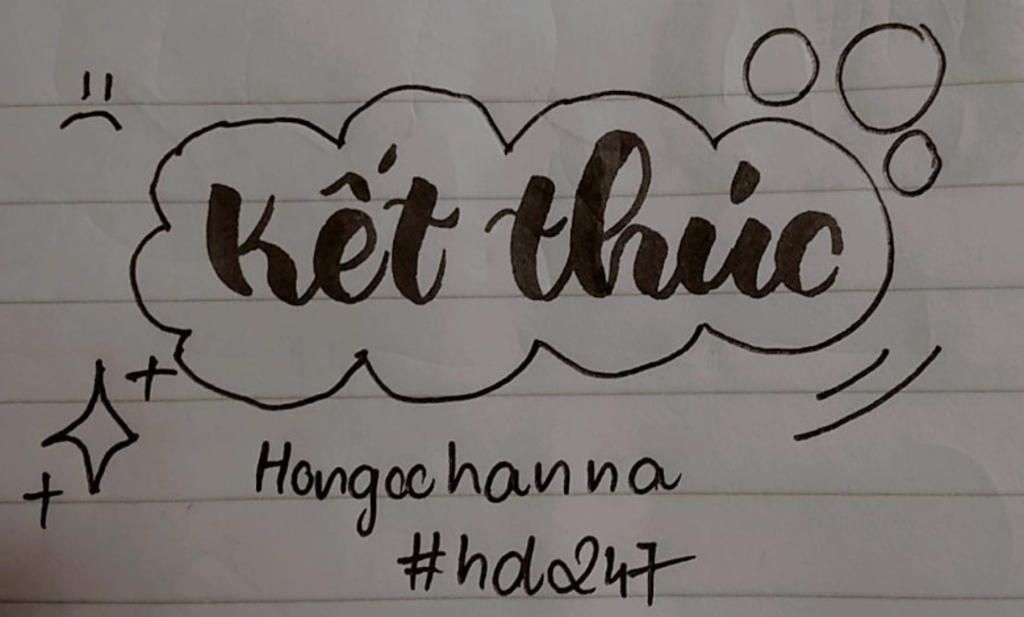 kết thúc
Hongocchanna
#hdc247